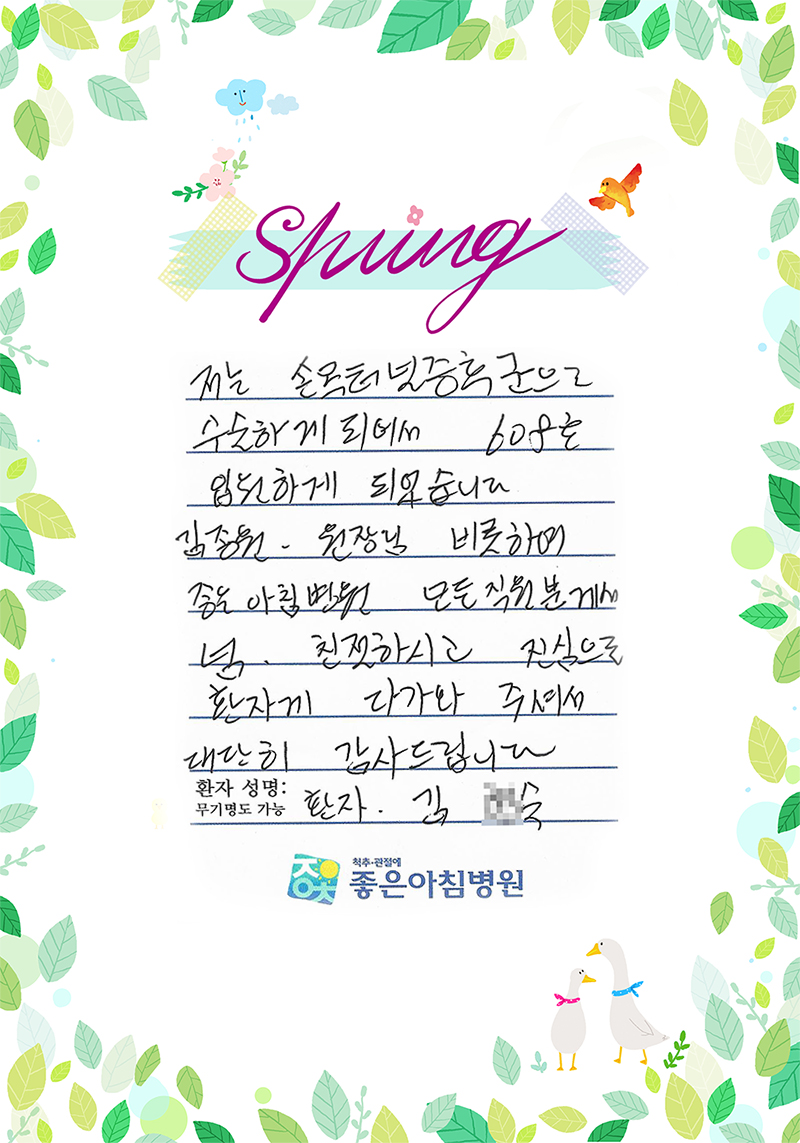 Spring
저는 손목터널증훅군으로
수술하게 되어서 608호
입원하게 되었습니다
김종원. 원장님 비롯하여
좋은아침병원 모든직원분게서
넘. 친절하시고 진심으로
환자게 다가와 주셔서
대단히 감사드립니다
환자 성명:
무기명도 가능 환자. 김 숙
척추·관절에
좋은아침병원